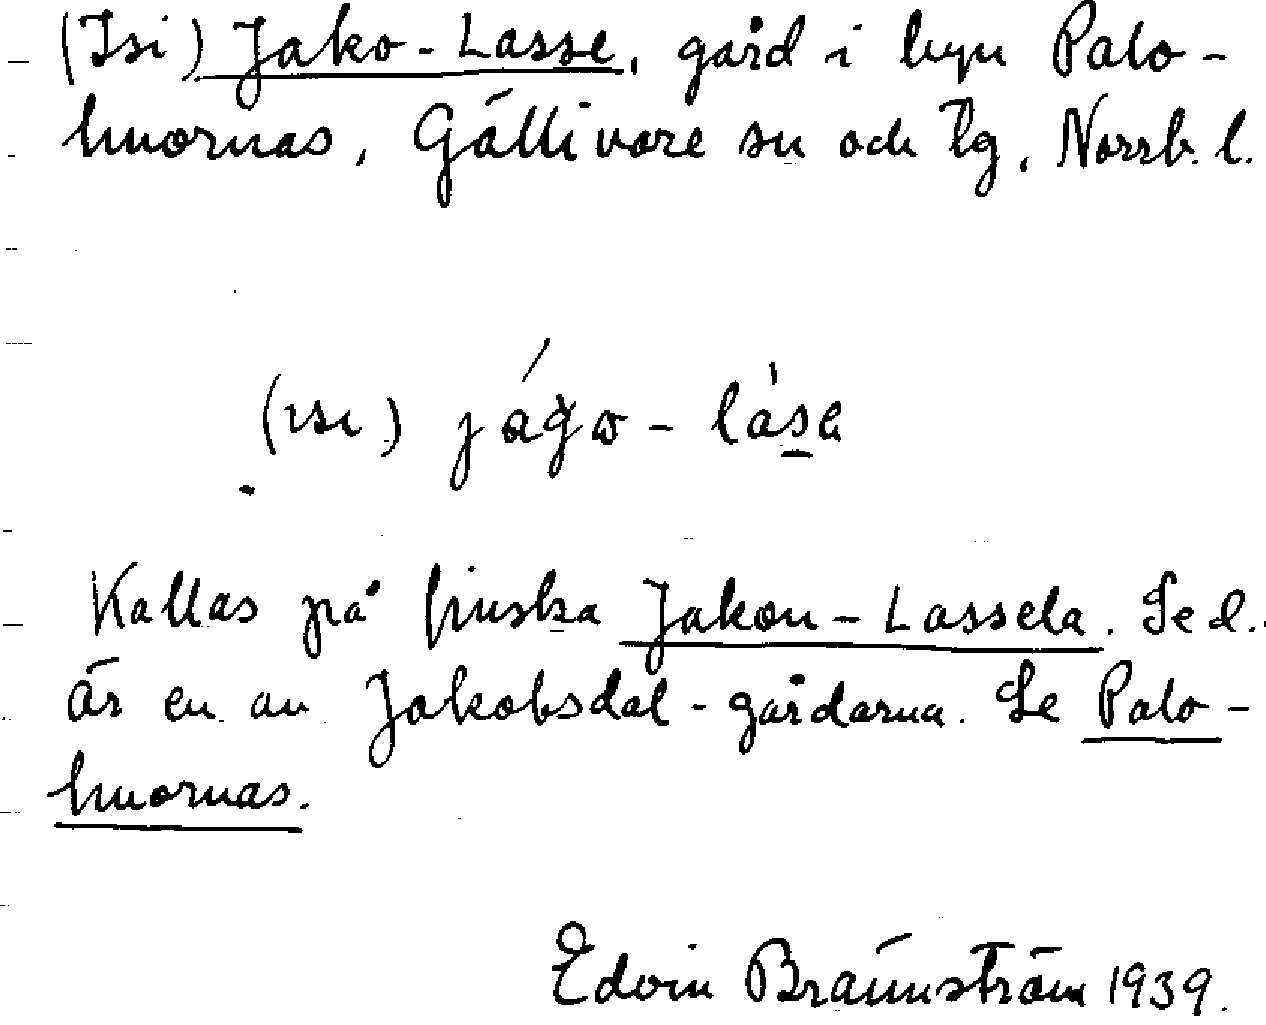 (Isi) Jako-Lasse, gård i byn Palo-
huornas, Gällivare sn och tg, Norrb. l.
(ısı) jágo - lása
Kallas på finska Jakon-Lassela. Ded.
är en av Jakobsdal-gårdarna. Se Palo-
huornas.
Edvin Brännström 1939.